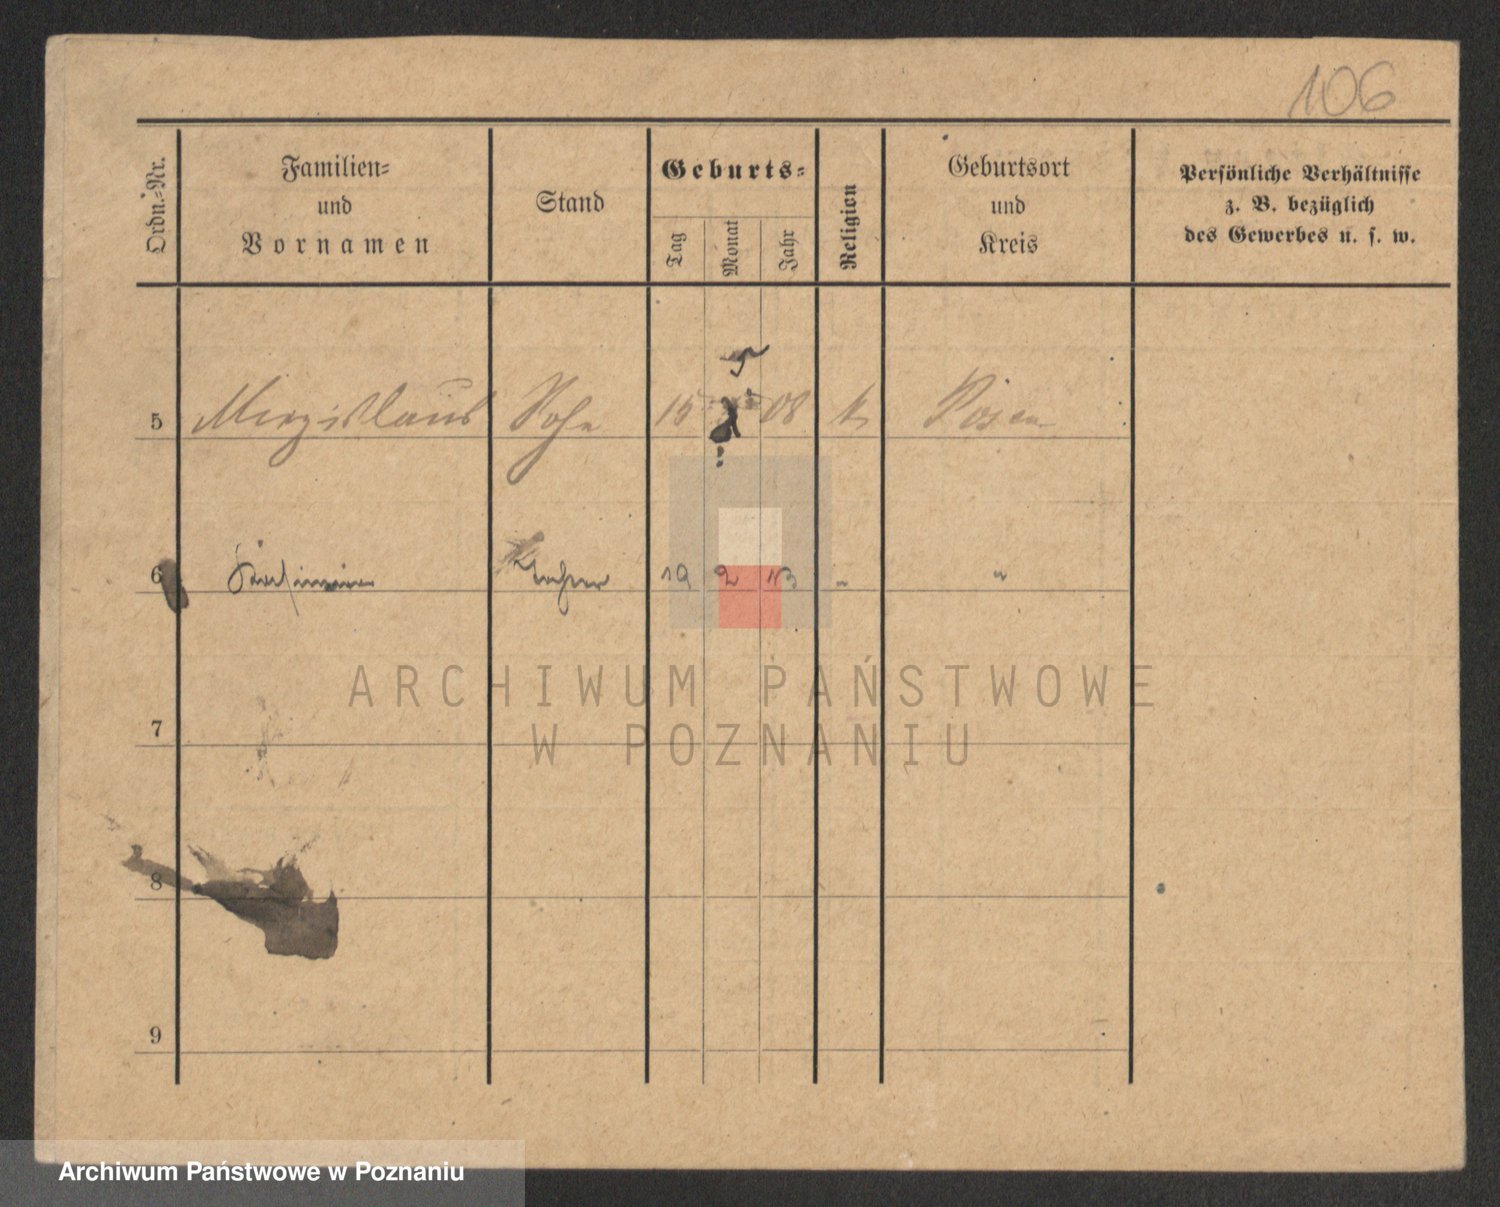 106
Ordn.-Nr.
Familien-
und
Vornamen
Stand
Geburts-
Tag
Monat
Jahr
Religion
Geburtsort
und
Kreis
Persönliche Verhältnisse
z. B. bezüglich
des Gewerbes u. s. w.
5
5 Miezislaus Sohn 15 08 k Posen
6 Kasimira Tochter 19 2 13 " "
ARCHIWUM PAŃSTWOWE
7
W POZNANIU
8
9
Archiwum Państwowe w Poznaniu